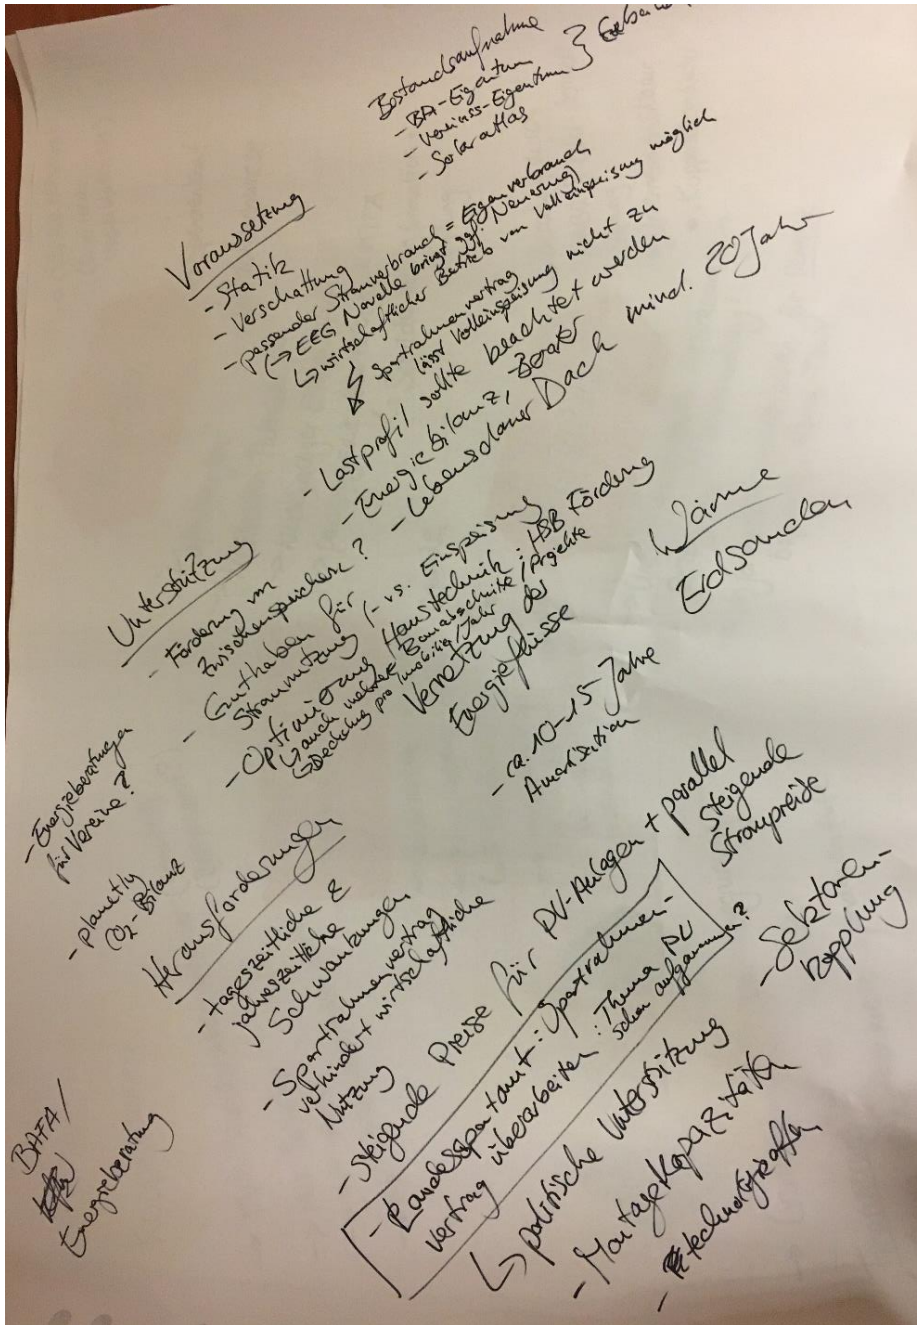 Bestandsaufnahme
- BA-Eigentum
- Vereins-Eigentum
- Solaratlas
Voraussetzung
- Statik
- Verschattung
- passender Stromverbrauch = Eigenverbrauch
(→ EEG Novelle bringt ggf. Neuerung)
↳ wirtschaftlicher Betrieb von Volleinspeisung möglich
Sportrahmenvertrag
lässt Volleinspeisung nicht zu
- Lastprofil sollte beachtet werden
- Energiebilanz, Berater
- Lebensdauer Dach mind. 20 Jahr
Unterstützung
- Förderung von
Zwischenspeichern?
- Guthaben für
Stromnutzung /- vs. Einspeisung
- Optimierung Haustechnik: LSB Förderung
↳ auch mehrere Bauabschnitte / Projekte
↳ Deckelung pro Immobilie/Jahr
Vernetzung der
Energieflüsse
- ca. 10-15-Jahre
Amortisation
Wärme
Erdsonden
- Energieberatungen
für Vereine?
- planetly
CO2-Bilanz
Herausforderungen
- tageszeitliche &
jahreszeitliche
Schwankungen
- Sportrahmenvertrag
verhindert wirtschaftliche
Nutzung
- Steigende Preise für PV-Anlagen + parallel
steigende
Strompreise
- Landessportamt: Sportrahmen-
vertrag überarbeiten: Thema PV
schon aufgenommen?
↳ politische Unterstützung
- Sektoren-
kopplung
- Montagekapazitäten
- technologieoffen
BAFA/
Energieberatung